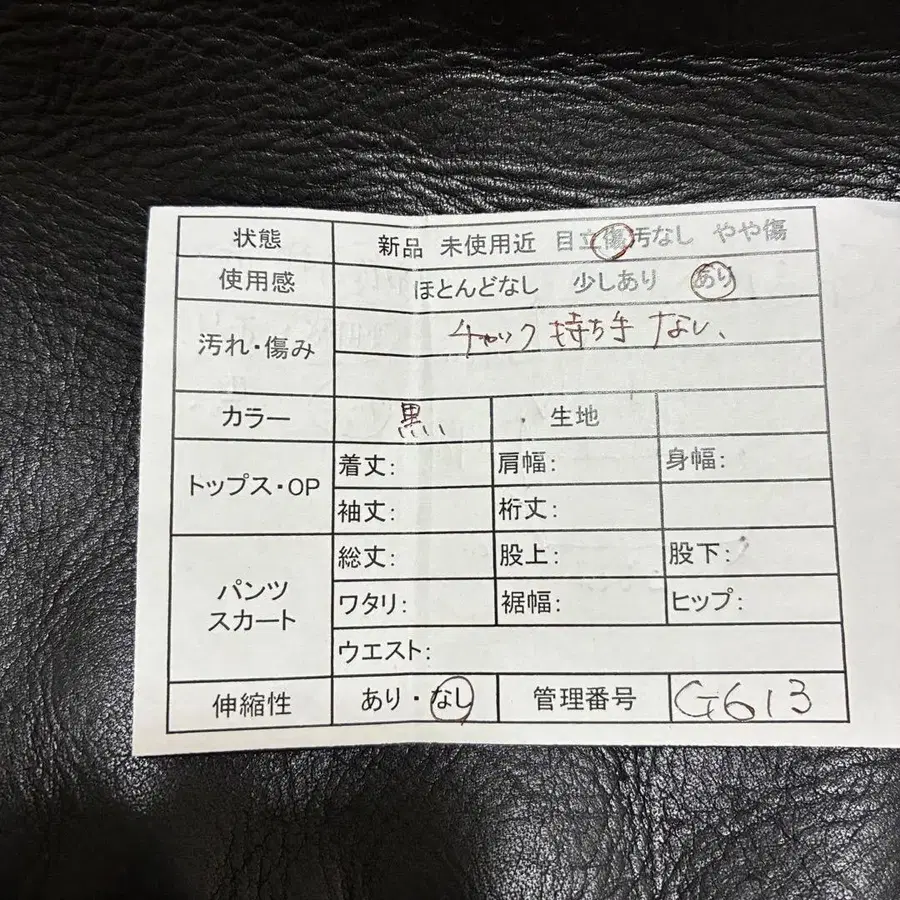 状態 新品 未使用近 目立傷汚なし やや傷
使用感 ほとんどなし 少しあり あり
汚れ・傷み チャック持ち手なし、
カラー 黒 生地
トップス・OP 着丈: 肩幅: 身幅:
袖丈: 桁丈:
パンツ スカート 総丈: 股上: 股下:
ワタリ: 裾幅: ヒップ:
ウエスト:
伸縮性 あり・なし 管理番号 G613